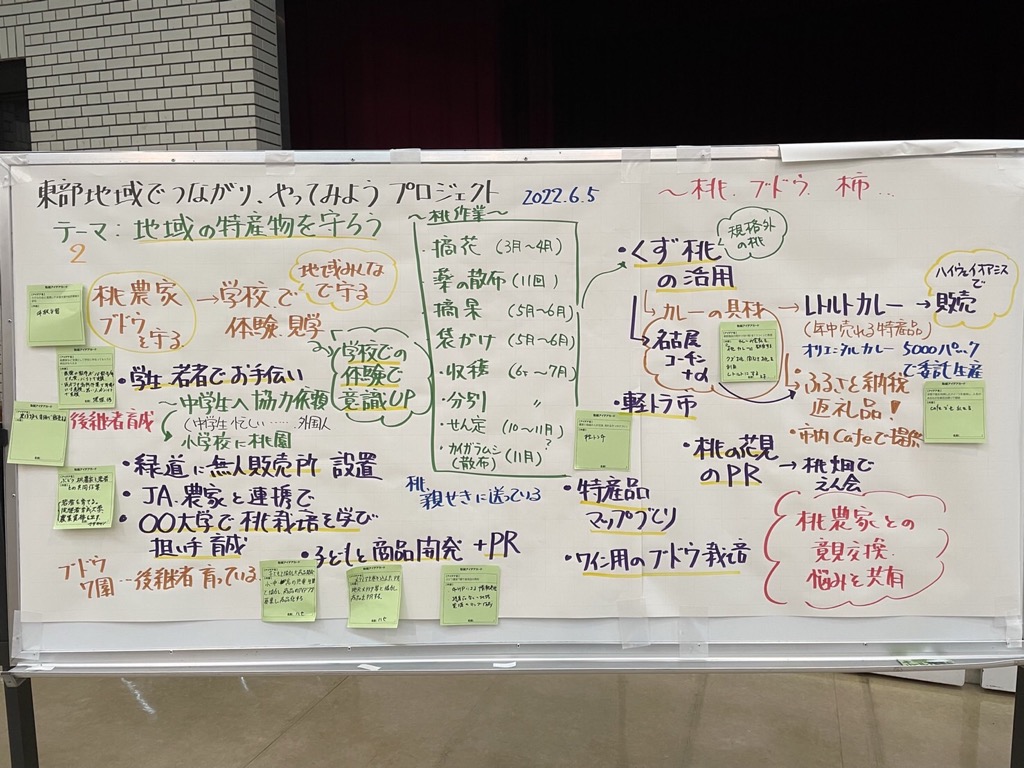 東部地域でつながり、やってみようプロジェクト 2022.6.5
テーマ：地域の特産物を守ろう
2
桃農家
ブドウを守る
→学校で
体験、見学
地域みんな
で守る
学校での
体験で
意識UP
・学生 若者でお手伝い
→中学生へ協力依頼
(中学生忙しい……外国人
小学校に桃園
後継者育成
・緑道に無人販売所 設置
・JA.農家と連携で
・〇〇大学で桃栽培を学び
担い手育成
ブドウ
7園…後継者育っている
・子どもと商品開発+PR
〜桃作業〜
・摘花 (3月〜4月)
・薬の散布 (11回)
・摘果 (5月〜6月)
・袋がけ (5月〜6月)
・収穫 (6月〜7月)
・分別
・せん定 (10〜11月)
・カイガラムシ
(散布) (11月)?
桃、
親せきに送っている
〜桃、ブドウ、柿…
・くず桃
の活用
規格外
の桃
カレーの具材
→レトルトカレー→販売
ハイウェイオアシス
で
(年中売れる特産品)
オリエンタルカレー 5000パック
で委託生産
名古屋
コーチン
+α
・ふるさと納税
返礼品!
・市内Cafeで提供
・軽トラ市
・桃の花見
のPR
→桃畑で
えん会
・特産品
マップづくり
・ワイン用のブドウ栽培
桃農家との
意見交換
悩みを共有
Cafeでも出せる